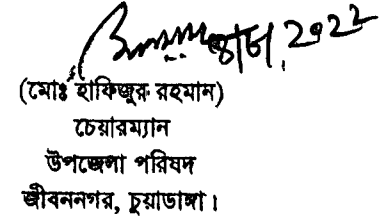 ২০২২
(মোঃ হাফিজুর রহমান)
চেয়ারম্যান
উপজেলা পরিষদ
জীবননগর, চুয়াডাঙ্গা।